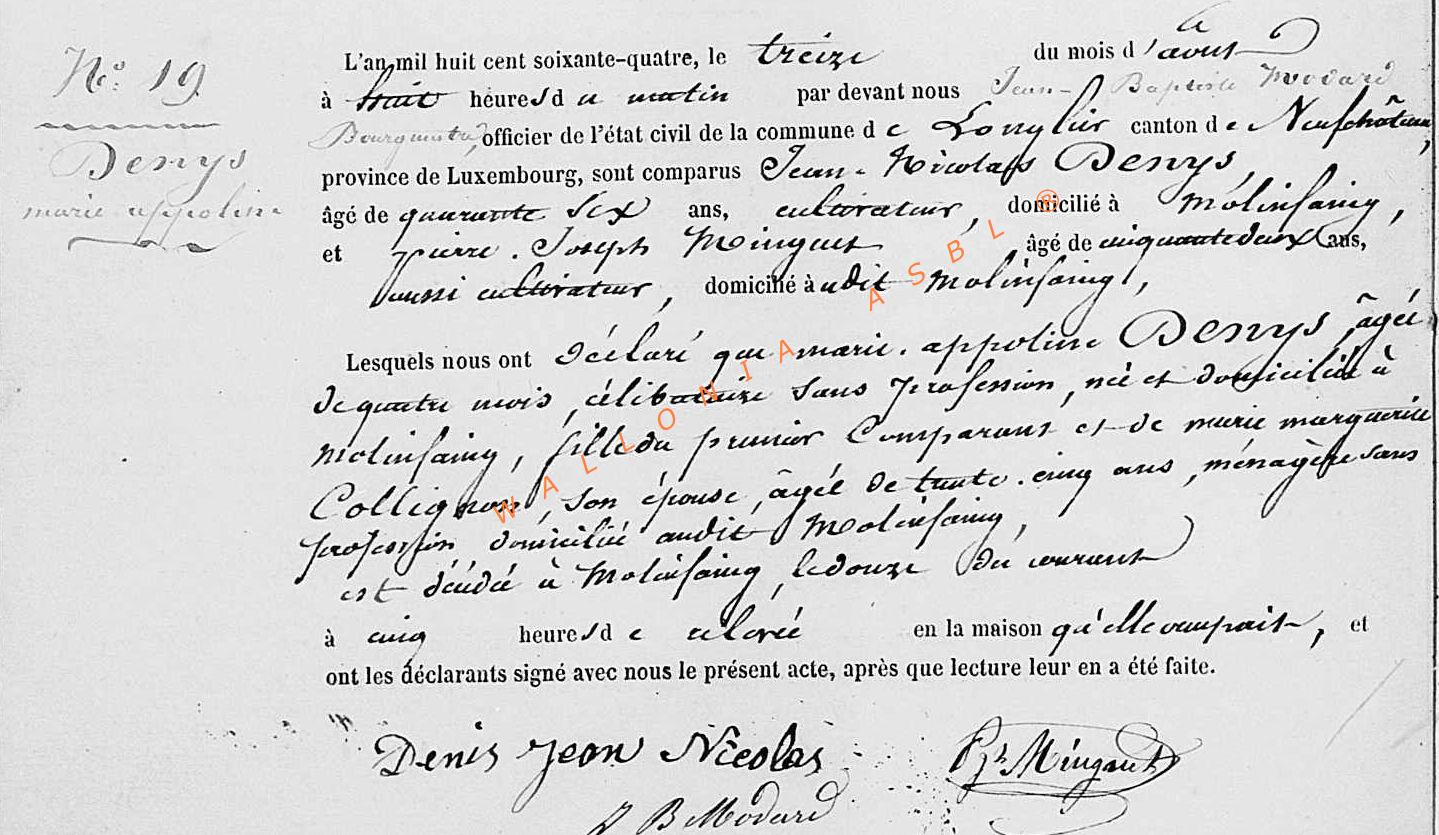 N.o 19
Denys
marie appoline
L'an mil huit cent soixante-quatre, le treize du mois d'août
à huit heures du matin par devant nous Jean-Baptiste Modard
Bourgmestre, officier de l'état civil de la commune de Longlier canton de Neufchâteau,
province de Luxembourg, sont comparus Jean-Nicolas Denys,
âgé de quarante six ans, cultivateur, domicilié à Molinfaing,
et pierre-Joseph Minguet âgé de cinquante deux ans,
aussi cultivateur, domicilié audit Molinfaing,
Lesquels nous ont déclaré que marie-appoline Denys, âgée
de quatre mois, célibataire sans profession, née et domiciliée à
Molinfaing, fille du premier Comparant et de marie marguerite
Collignon, son épouse, âgée de trente-cinq ans, ménagère sans
profession, domiciliée audit Molinfaing,
est décédée à Molinfaing, le douze du courant
à cinq heures de relevée en la maison qu'elle occupait, et
ont les déclarants signé avec nous le présent acte, après que lecture leur en a été faite.
Denis Jean Nicolas
Minguet
J B Modard
WALLONIA ASBL ®